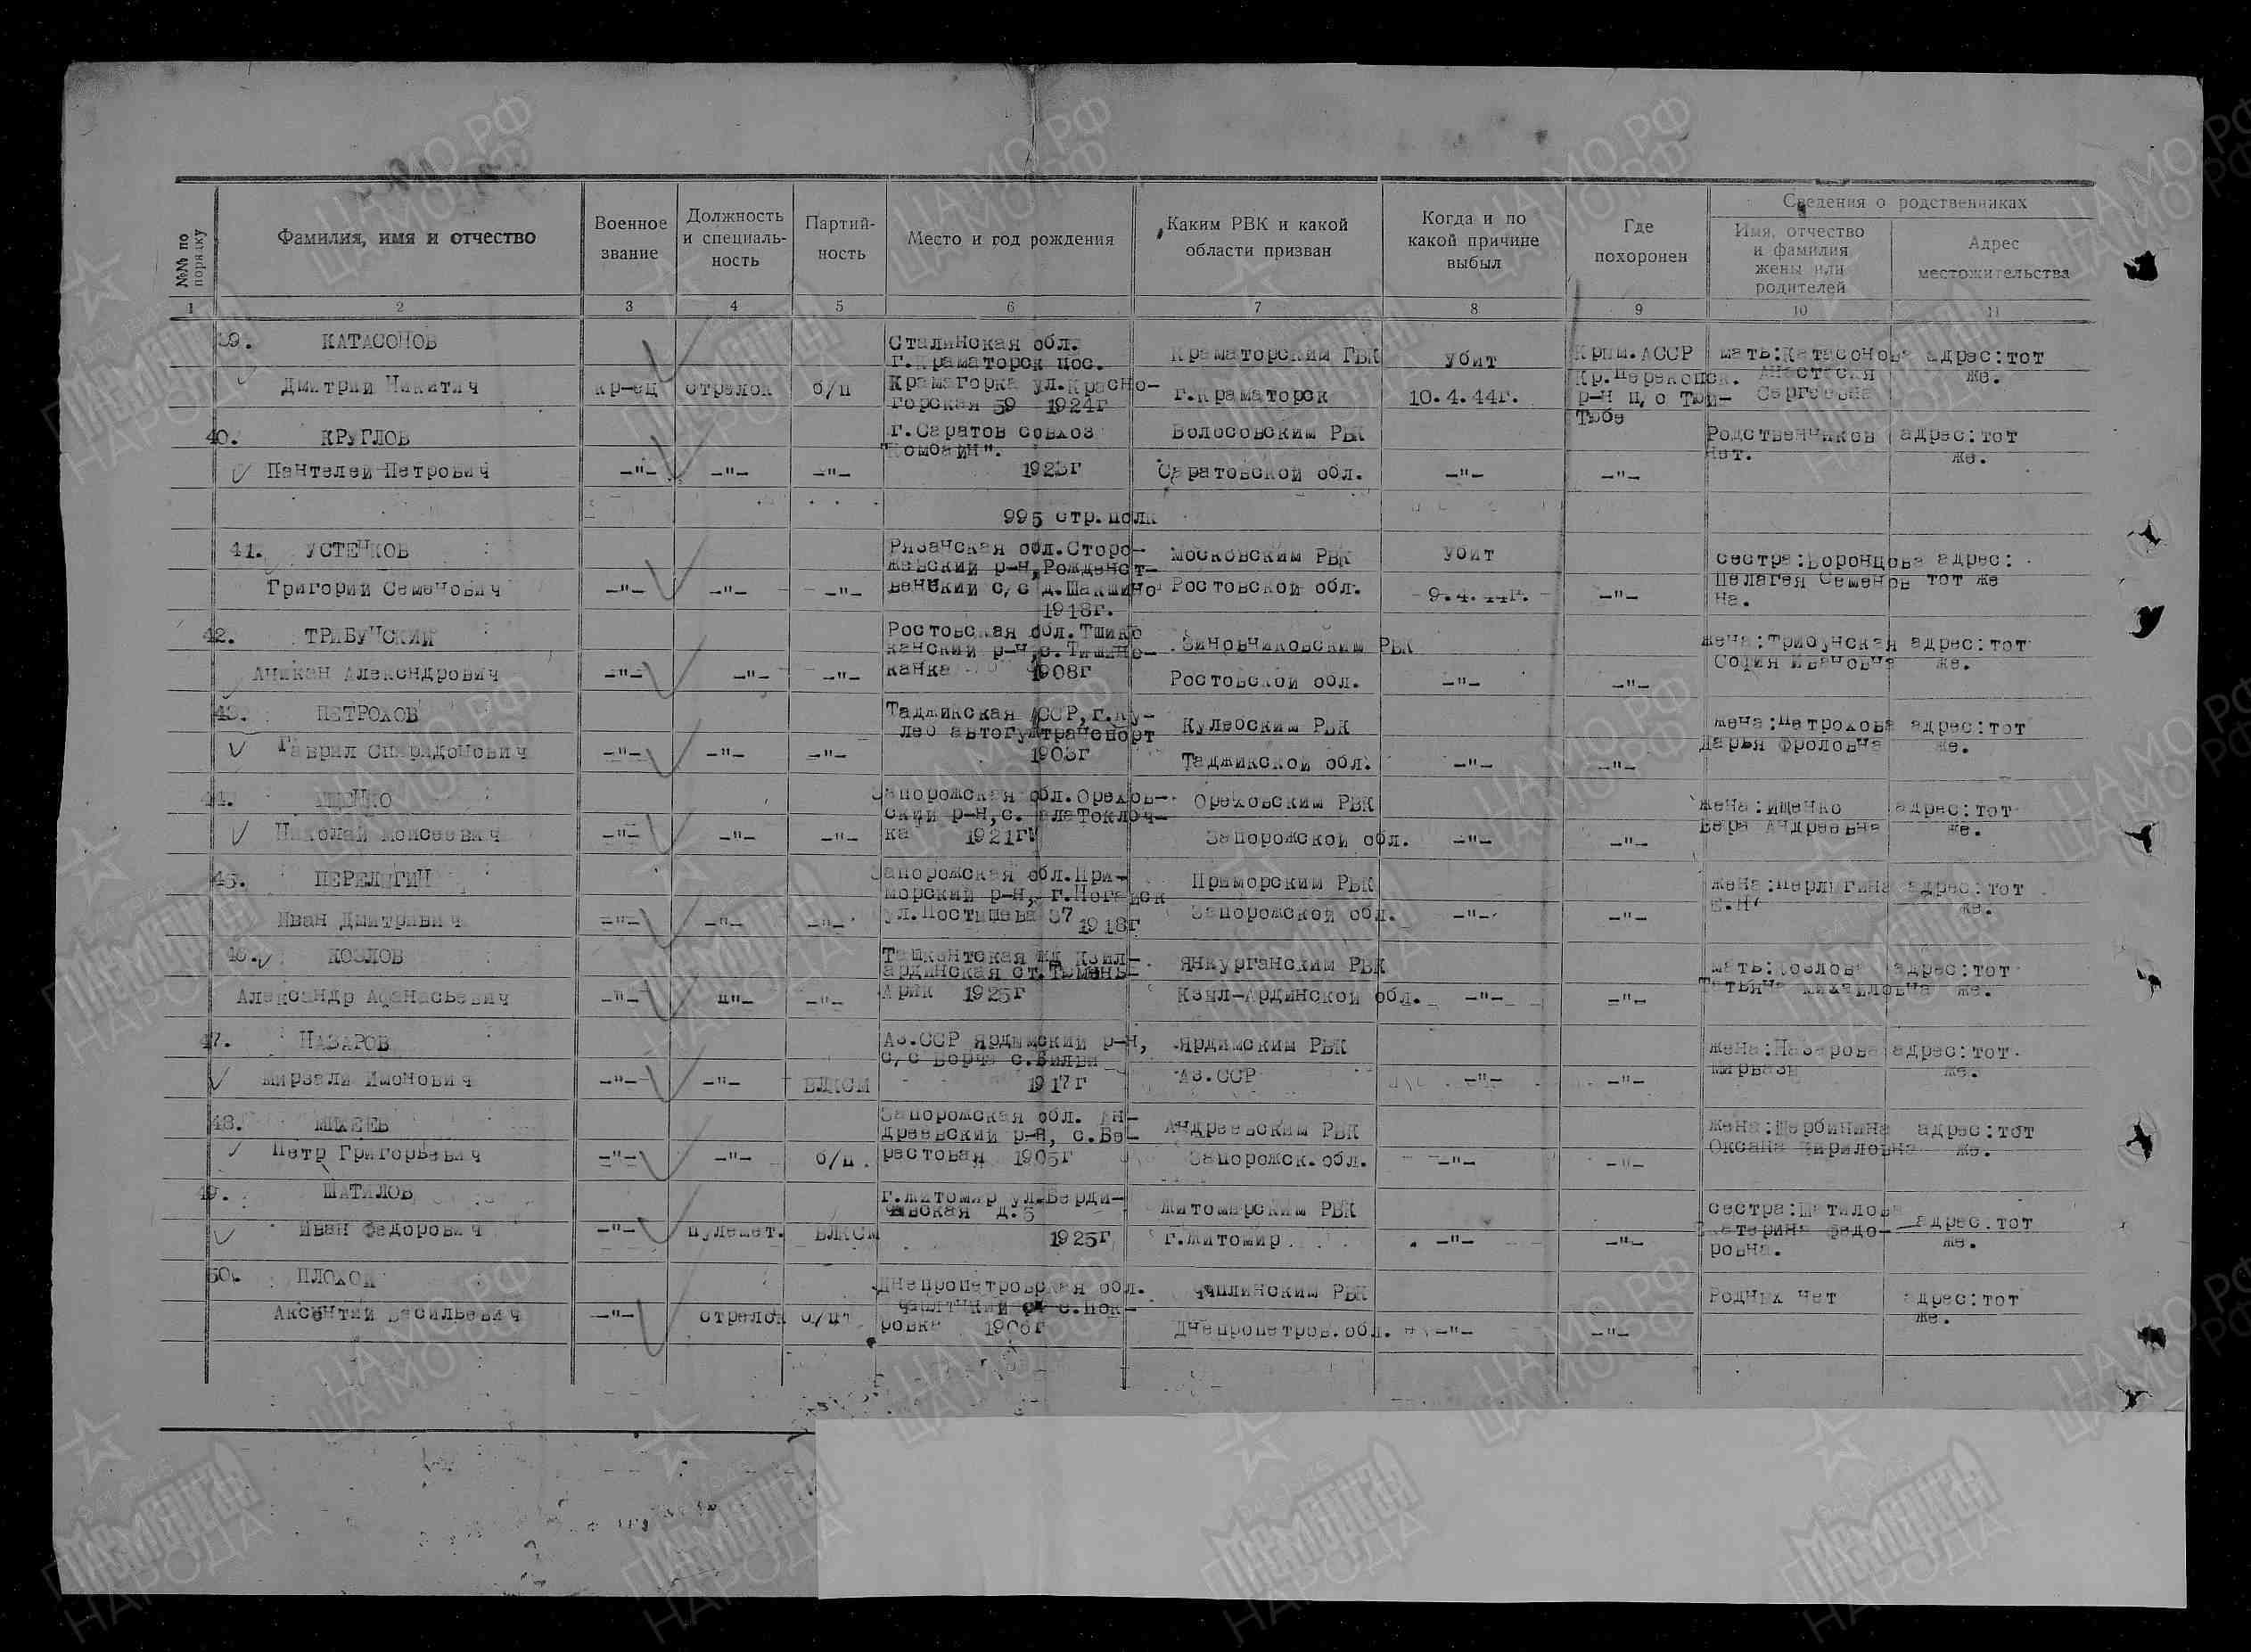 №№ по порядку
Фамилия, имя и отчество
Военное звание
Должность и специаль-ность
Партий-ность
Место и год рождения
Каким РВК и какой области призван
Когда и по какой причине выбыл
Где похоронен
Сведения о родственниках
Имя, отчество и фамилия жены или родителей
Адрес местожительства
1 2 3 4 5 6 7 8 9 10 11
39. КАТАСОНОВ
Дмитрий Никитич
кр-ец стрелок б/п
Сталинская обл.
г.Краматорск пос.
Крамагорка ул.Красно-
горская 59 1924г
Краматорским ГВК
г.Краматорск
убит
10.4.44г.
Крым.АССР
Кр.Перекопск.
р-н п/о Тюй-
Тюбе
мать:Катасонова
Анастасия
Сергеевна
адрес:тот
же.
40. КРУГЛОВ
Пантелей Петрович
-"- -"- -"-
г.Саратов совхоз
"Комбайн".
1923г
Волосовским РВК
Саратовской обл.
-"- -"-
Родственников
нет.
адрес:тот
же.
995 стр.полк
41. УСТЕНКОВ
Григорий Семенович
-"- -"- -"-
Рязанская обл.Сторо-
жевский р-н,Рождест-
венский с/с д.Шакшино
1918г.
Московским РВК
Ростовской обл.
убит
9.4.44г.
-"-
сестра:Воронцова
Пелагея Семенов
на.
адрес:
тот же
42. ТРИБУНСКИЙ
Аникан Александрович
-"- -"- -"-
Ростовская обл.Тшимо
канский р-н,с.Тишино-
канка 1908г
Зиновчиковским РВК
Ростовской обл.
-"- -"-
жена:Трибунская
София Ивановна
адрес:тот
же.
43. ПЕТРОХОВ
Гаврил Спиридонович
-"- -"- -"-
Таджикская ССР,г.Ку-
леб автогужтранспорт
1903г
Кулебским РВК
Таджикской обл.
-"- -"-
жена:Петрохова
Дарья Фроловна
адрес:тот
же.
44. ИЩЕНКО
Николай Моисеевич
-"- -"- -"-
Запорожская обл.Орехов-
ский р-н,с.
ка 1921г
Ореховским РВК
Запорожской обл.
-"- -"-
жена:Ищенко
Вера Андреевна
адрес:тот
же.
45. ПЕРЕЛЫГИН
Иван Дмитривич
-"- -"- -"-
Запорожская обл.При-
морский р-н, г.Ногайск
ул.Постышева 37
1918г
Приморским РВК
Запорожской обл.
-"- -"-
жена:Перлыгина
Е.Н
адрес:тот
же.
46. КОЗЛОВ
Александр Афанасьевич
-"- -"- -"-
Ташкентская жд Кзил-
ардинская ст.Тюмень-
Арик 1925г
Янкурганским РВК
Кзыл-Ардинской обл.
-"- -"-
мать:Козлова
Татьяна Михайловна
адрес:тот
же.
47. НАЗАРОВ
Мирзали Имонович
-"- -"- ВЛКСМ
Аз.ССР Ярдымский р-н,
с/с Борча с.
1917г
Ярдимским РВК
Аз.ССР
-"- -"-
жена:Назарова
адрес:тот
же.
48. МИХЕЕВ
Петр Григорьевич
-"- -"- б/п.
Запорожская обл. Ан-
дреевский р-н, с.Бе-
рестовая 1905г
Андреевским РВК
Запорожск.обл.
-"- -"-
жена:Щербинина
Оксана Кириловна
адрес:тот
же.
49. ШАТИЛОВ
Иван Федорович
-"- пулемет. ВЛКСМ
г.Житомир ул.Берди-
чевская д.5
1925г
Житомирским РВК
г.Житомир
-"- -"-
сестра:Шатилова
Екатерина Федо-
ровна.
адрес.тот
же.
50. ПЛОХОЙ
Аксентий Васильевич
-"- стрелок б/п
Днепропетровская обл.
с.Пок-
ровка 1906г
Чаплинским РВК
Днепропетров.обл.
-"- -"-
Родных нет
адрес:тот
же.
ЦАМО.РФ
Память НАРОДА
1941-1945